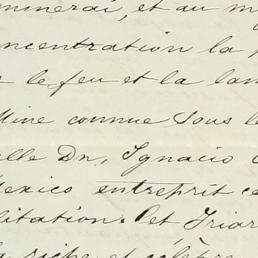 minerai, et au m
oncentration la p
le feu et la lam
Mine connue sous le
elle Dn, Ignacio
Mexico entreprit ce
litation. Cet Iriar
la riche et célèbre